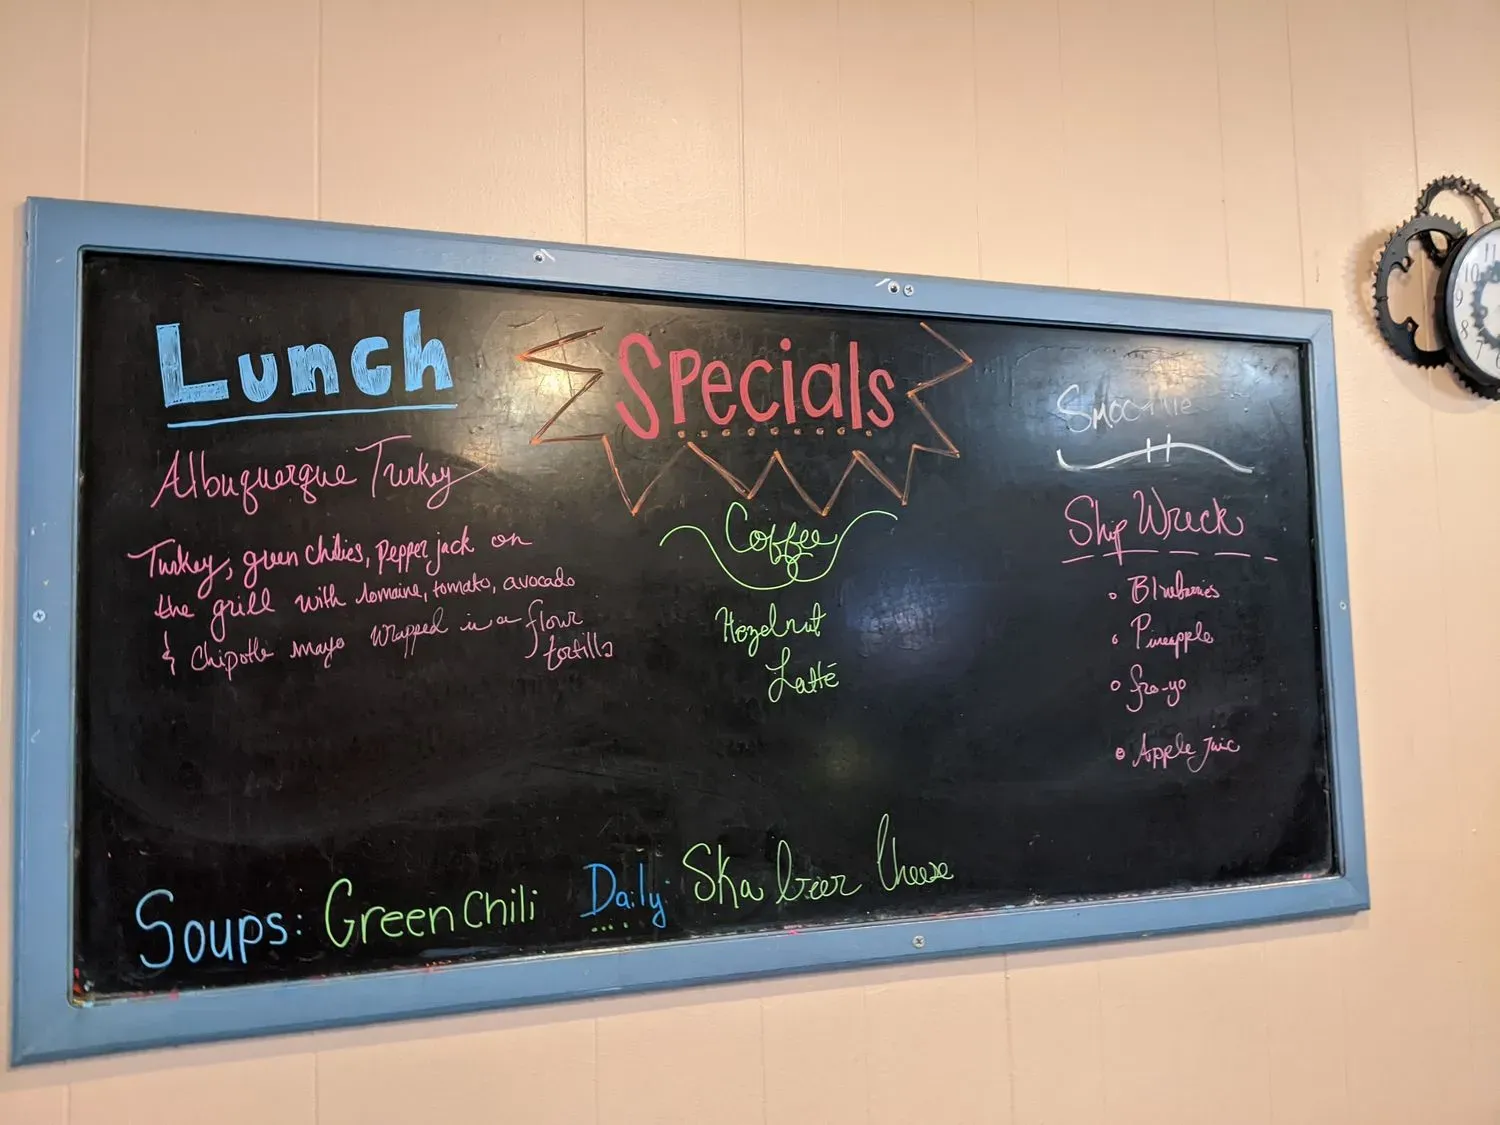 Lunch
Specials
Smoothie
Albuquerque Turkey
Turkey, green chilies, pepper jack on
the grill with romaine, tomato, avocado
& Chipotle mayo wrapped in a flour
tortilla
Coffee
Hazelnut
Latté
Ship Wreck
Blueberries
Pineapple
fro-yo
Apple juic
Soups: Green Chili Daily: Ska beer Cheese
11
10
9
8
7